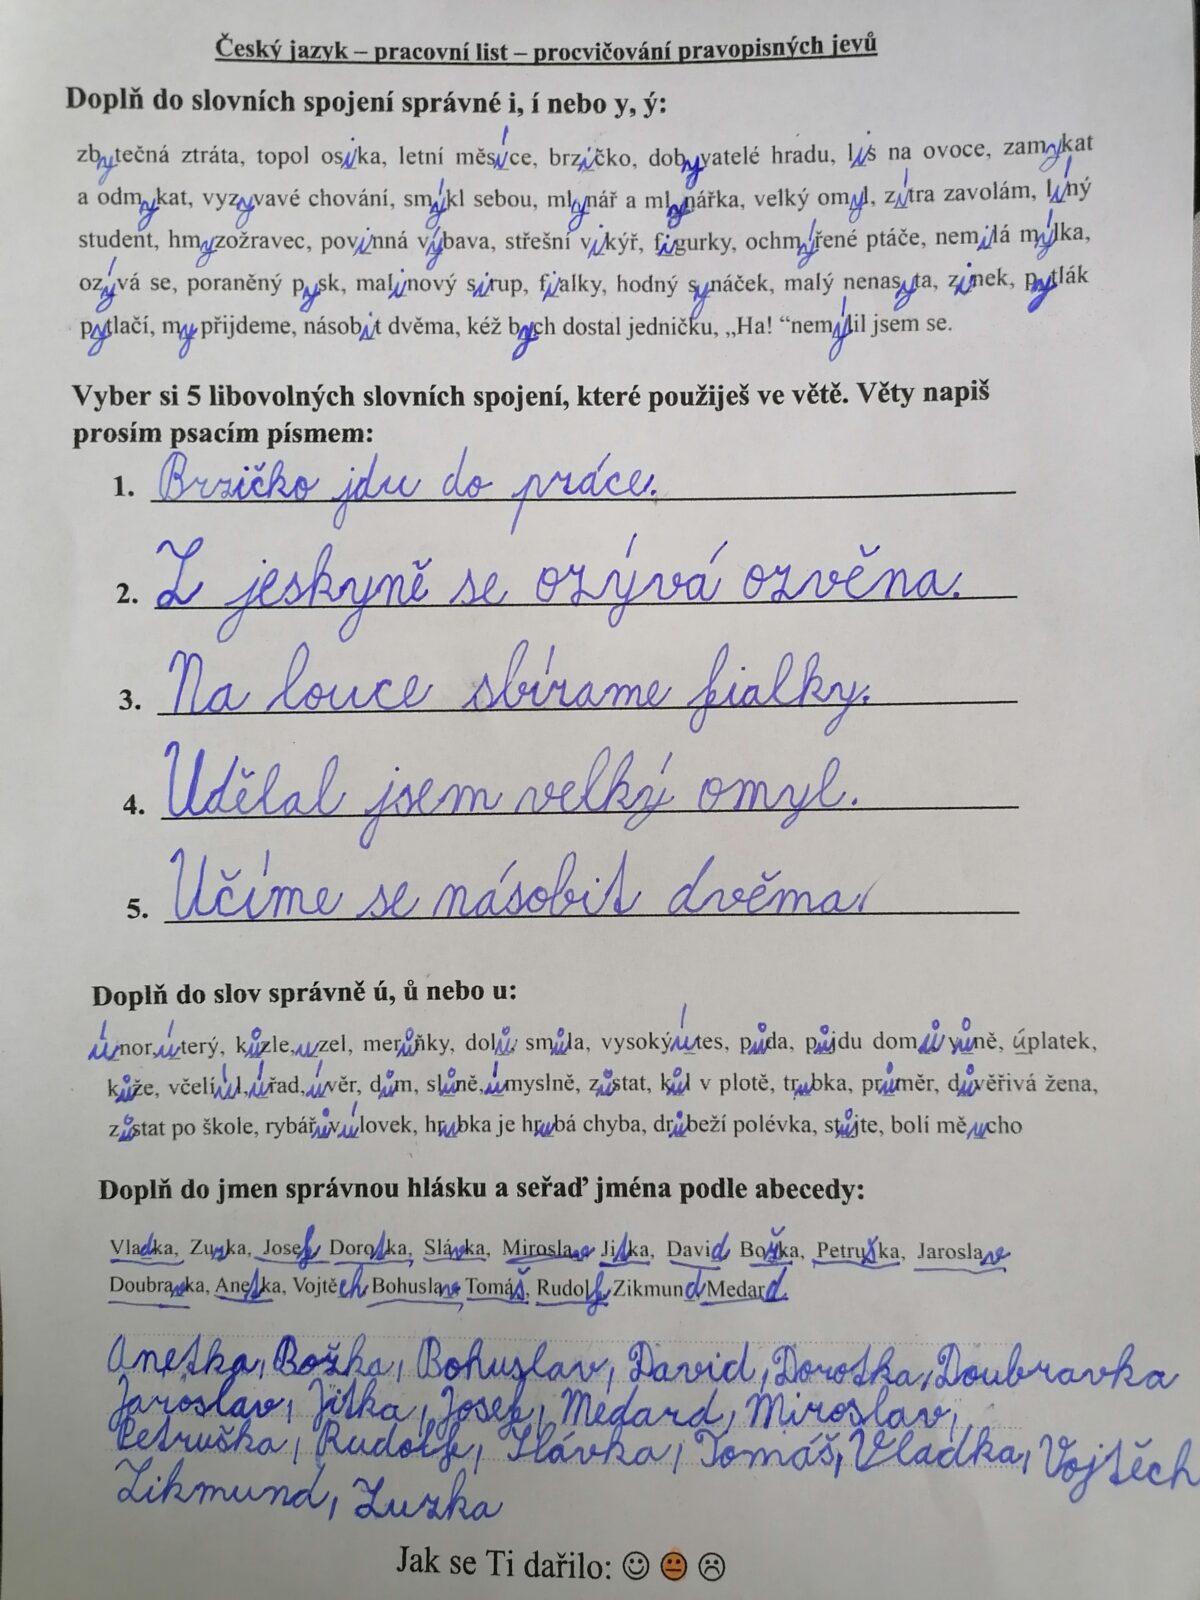 Český jazyk – pracovní list – procvičování pravopisných jevů
Doplň do slovních spojení správné i, í nebo y, ý:
zbytečná ztráta, topol osika, letní měsíce, brzičko, dobyvatelé hradu, lis na ovoce, zamykat
a odmykat, vyzyvavé chování, smýkl sebou, mlynář a mlynářka, velký omyl, zítra zavolám, líný
student, hmyzožravec, povinná výbava, střešní vikýř, figurky, ochmýřené ptáče, nemilá mýlka,
ozývá se, poraněný pysk, malinový sirup, fialky, hodný synáček, malý nenasyta, zinek, pytlák
pytlačí, my přijdeme, násobit dvěma, kéž bych dostal jedničku, „Ha! “nemýlil jsem se.
Vyber si 5 libovolných slovních spojení, které použiješ ve větě. Věty napiš
prosím psacím písmem:
1. Brzičko jdu do práce.
2. Z jeskyně se ozývá ozvěna.
3. Na louce sbírame fialky.
4. Udělal jsem velký omyl.
5. Učíme se násobit dvěma.
Doplň do slov správně ú, ů nebo u:
únor, úterý, kůzle, uzel, merůňky, dolů, smůla, vysoký útes, půda, půjdu domů vůně, úplatek,
kůže, včelí úl, úřad, úvěr, dům, slůně, úmyslně, zůstat, kůl v plotě, trubka, průměr, důvěřivá žena,
zůstat po škole, rybářův úlovek, hrubka je hrubá chyba, drůbeží polévka, stůjte, bolí mě ucho
Doplň do jmen správnou hlásku a seřaď jména podle abecedy:
Vladka, Zuzka, Josef Dorotka, Slávka, Miroslav Jitka, David Božka, Petruška, Jaroslav
Doubravka, Anetka, Vojtěch Bohuslav Tomáš, Rudolf Zikmund Medard
Anetka, Božka, Bohuslav, David, Dorotka, Doubravka
Jaroslav, Jitka, Josef, Medard, Miroslav,
Petruška, Rudolf, Slávka, Tomáš, Vladka, Vojtěch
Zikmund, Zuzka
Jak se Ti dařilo: